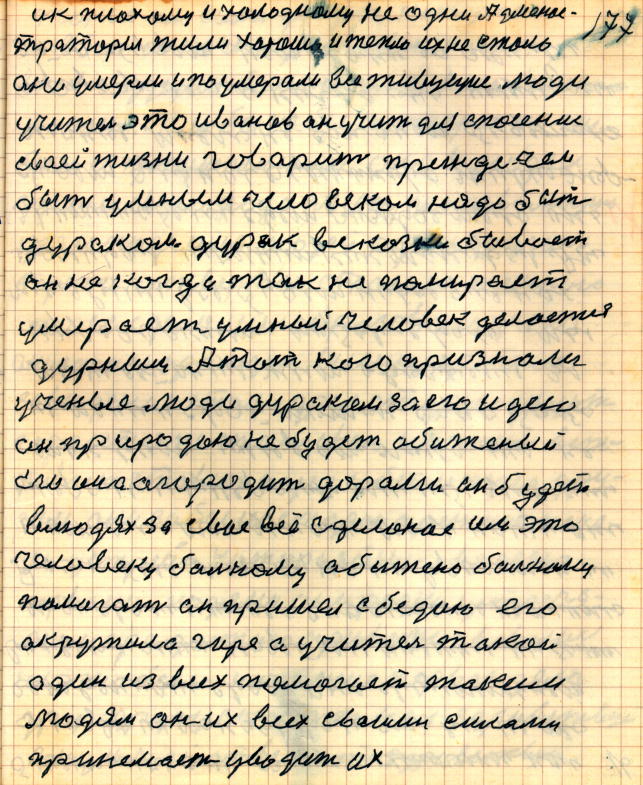 ик плохому и холодному не одни Админис- 177
тратори жили хорошо и тепло их не столь
они умерли и по умерали все живущие люди
учител это иванов он учит для спасение
своей жизни говарит прежде чем
быт умным человеком надо быт
дураком дурак векозни бывает
он не когда так не памирает
умерает умный человек делается
дурным А тот кого признали
ученые люди дураком за его идею
он природою не будет обиженый
его она огородит дорами он будет
в людях за свое всё сделоное им это
человеку балному обыжено балному
памагат он пришел с бедою его
окружила гире а учител такой
один из всех помогает таким
людям он их всех своими силами
принемает уводит их